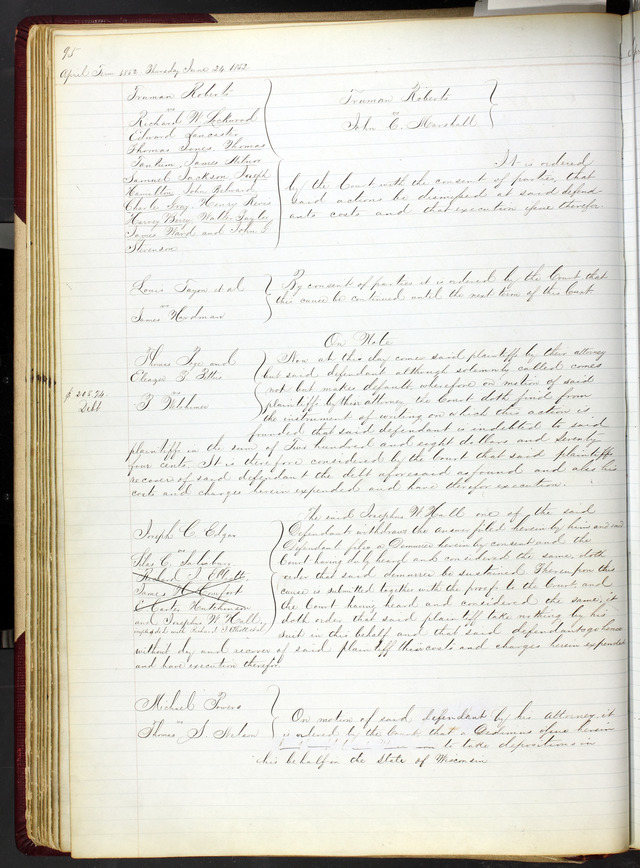 95
April Term 1852. Thursday June 24 1852
Truman Roberts
vs
Richard W Lockwood
Edward Lancaster
Thomas Jones Thomas
Tantum, James Nelson
Samuel Jackson Joseph
Hamilton John Belward
Charles Gray Henry
Harvey Berry Walter Taylor
James Ward and John S
Stevenson
Truman Roberts
vs
John C. Marshall
It is ordered
by the Court with the consent of parties, that
said actions be dismissed at said defend
ants costs and that execution issue therefor
Louis Tayon et al
vs
James Wordman
By consent of parties it is ordered by the Court that
this cause be continued until the next term of this Court
On Note
Thomas Page and
Eleazer P. Pettes
vs
P Hutchinson
$ 208.74
Debt
Now at this day comes said plaintiffs by their attorney
but said defendant although solemnly called comes
not but makes default, wherefore on motion of said
plaintiffs by their attorney the Court doth find from
the instrument of writing on which this action is
founded that said defendant is indebted to said
plaintiffs in the sum of Two hundred and eight dollars and Seventy
four cents. It is therefore considered by the Court that said plaintiffs
recover of said defendant the debt aforesaid as found and also his
costs and charges herein expended and have therefor execution.
Joseph C. Edgar
vs
Silas C. Salsbury
Richard J Elliott
James Comfort
Hutchinson
and Josephus W Hall,
impleaded with Richard J Elliott et al
The said Josephus W Hall one of the said
Defendants withdraws the answer filed herein by him and said
Defendant files a Demurrer herein by consent and the
Court having duly heard and considered the same, doth
order that said demurrer be sustained. Thereupon this
cause is submitted together with the proofs to the Court and
the Court having heard and considered the same, it
doth order that said plaintiff take nothing by his
suit in this behalf and that said defendants go hence
without day and recover of said plaintiff their costs and charges herein expended
and have execution therefor.
Michael Powers
vs
Thomas S. Nelson
On motion of said defendant by his attorney it
is ordered by the Court that a Dedimus issue herein
to take depositions in
his behalf in the State of Wisconsin